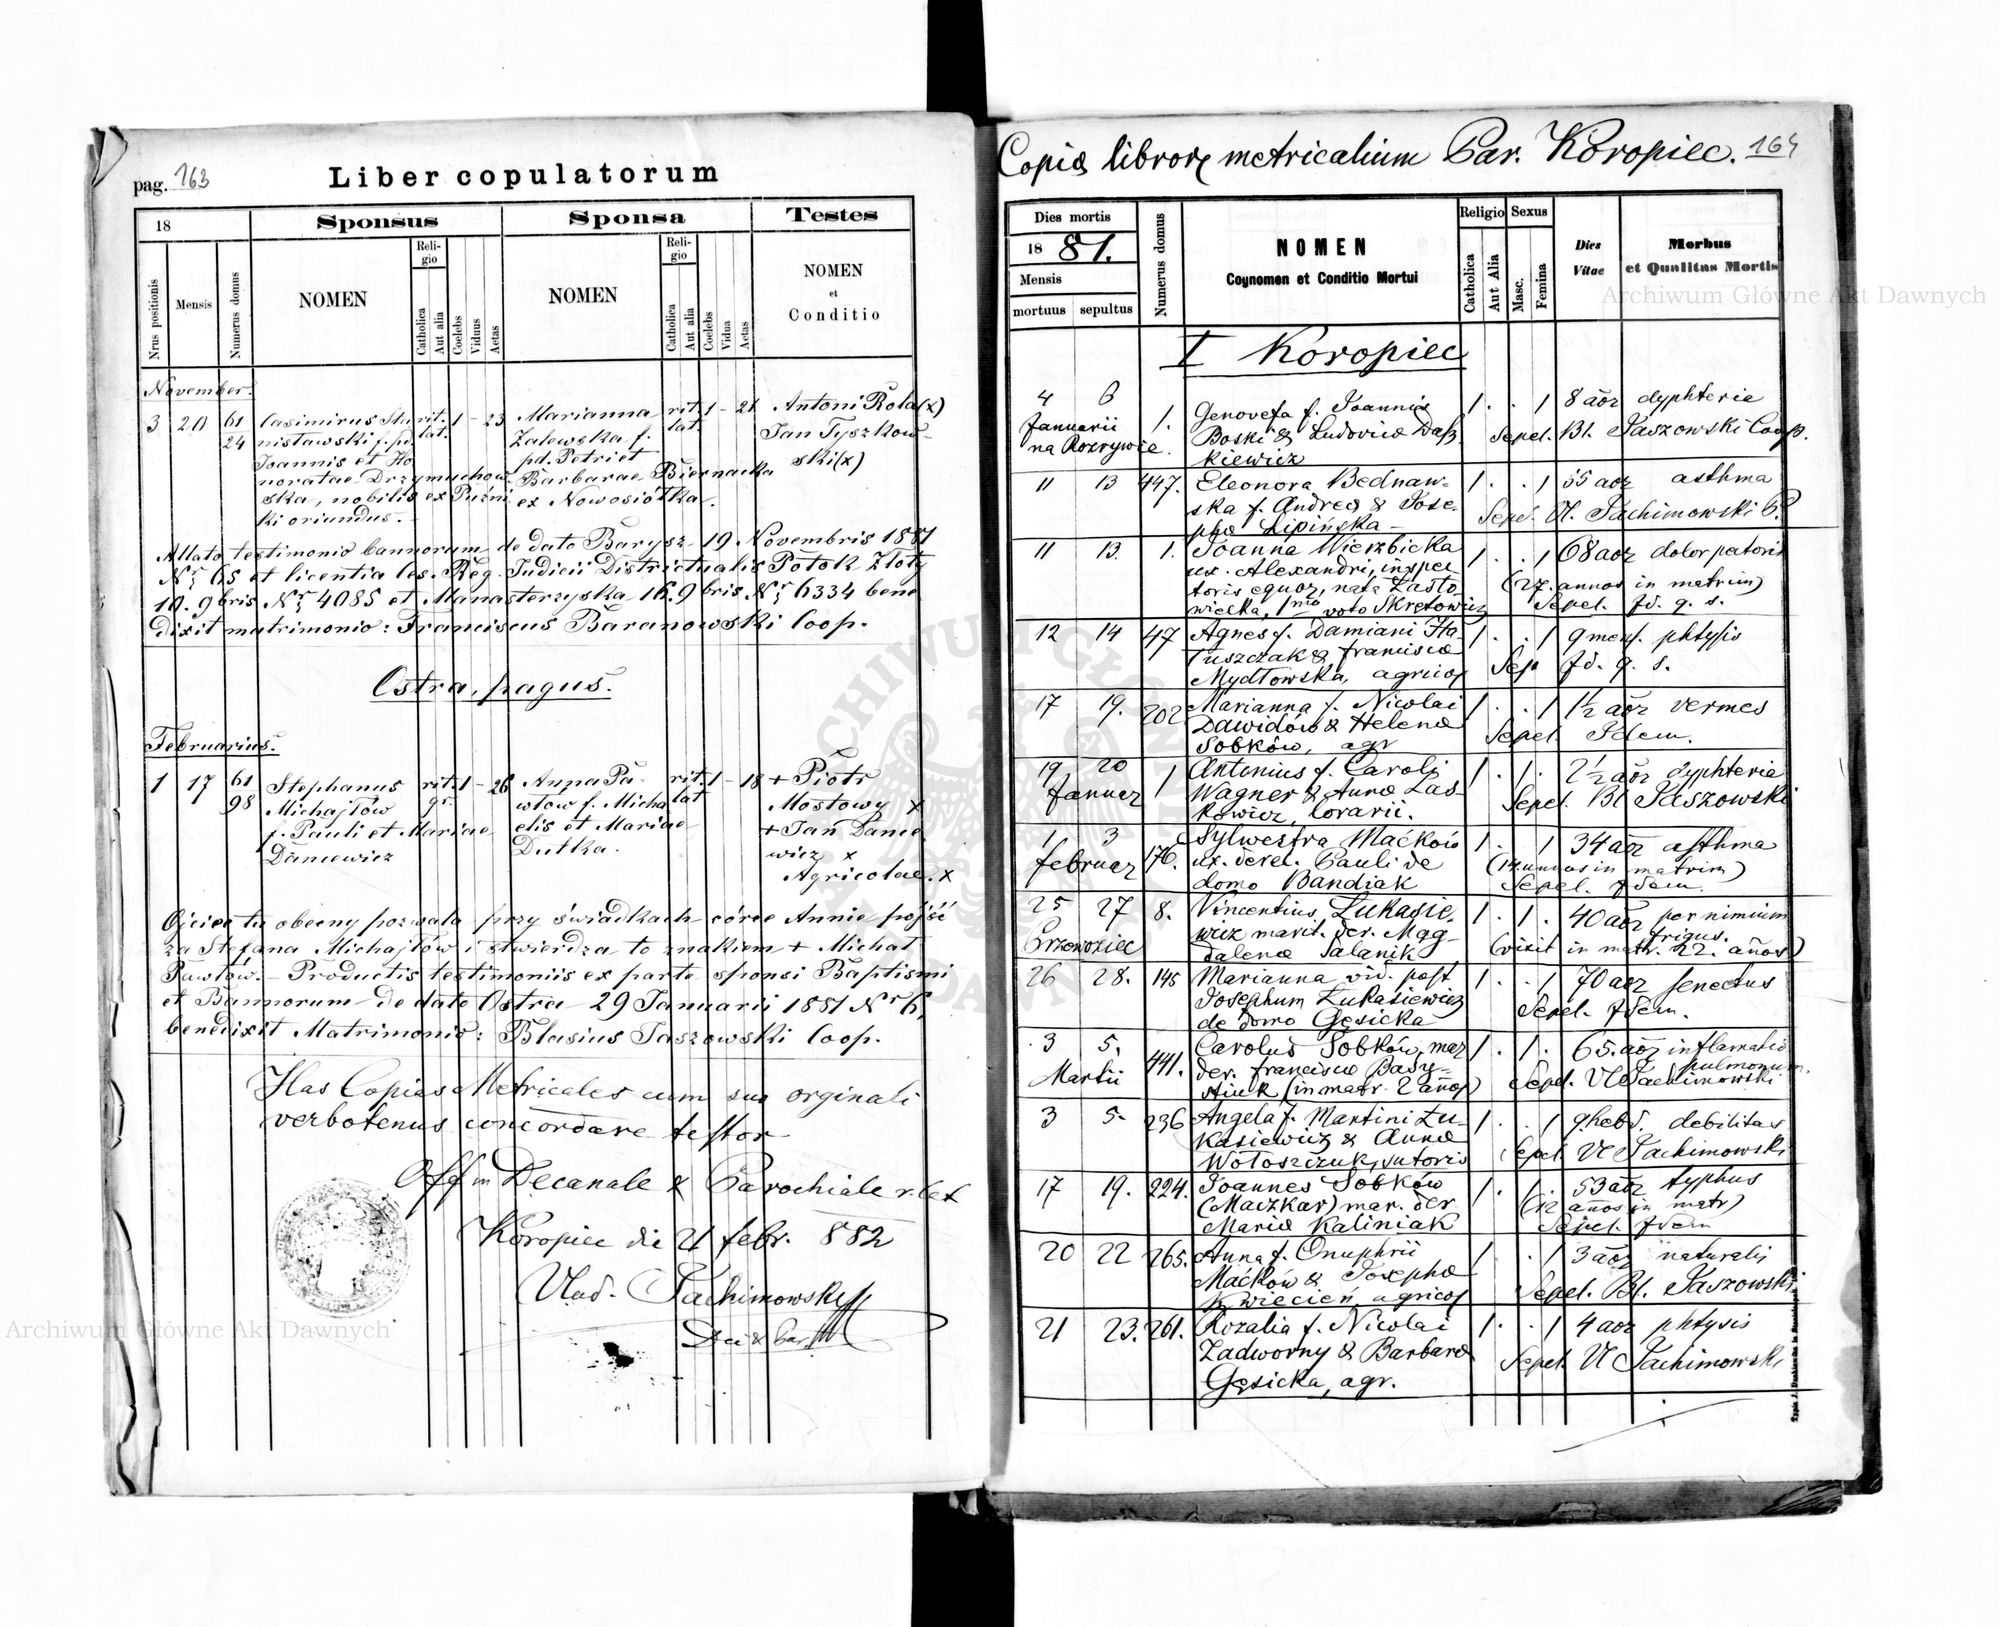 pag. 163
Liber copulatorum
18
Sponsus
Sponsa
Testes
Nrus positionis
Mensis
Numerus domus
NOMEN
Reli-
gio
Catholica
Aut alia
Coelebs
Viduus
Aetas
NOMEN
Reli-
gio
Catholica
Aut alia
Coelebs
Vidua
Aetas
NOMEN
et
Conditio
November.
3 20 61 Casimirus Sta rit. 1 - 23 Marianna rit. 1 - 21 Antoni Rola (x)
24 nisławski f. pd. lat. Zalewska f. lat. Jan Tyszkow-
Joannis et Ho pd. Petri et ski (x)
noratae Drzymuchow- Barbarae Biernacka
ska, nobilis ex ex Nowosiółka.
ki oriundus.
Allato testimonio bannorum de dato Barysz 19 Novembris 1881
Nr 65 et licentia Ces. Reg. Judicii Districtualis Potok Złoty
10. 9bris Nr 4085 et Manasterzyska 16. 9bris Nr 6334 bene
dixit matrimonio: Franciscus Baranowski Coop.
Ostra, pagus.
Februarius.
1 17 61 Stephanus rit. 1 - 26 Anna Pa rit. 1 - 18 + Piotr
98 Michajłów gr. włów f. Micha lat Mostowy x
f. Pauli et Mariae elis et Mariae + Jan Danie
Daniewicz Dutka. wicz x
Agricolae. x
Ojciec tu obecny pozwala przy świadkach córce Annie pójść
za Stefana Michajłów i stwierdza to znakiem + Michał
Pawłów. - Productis testimoniis ex parte sponsi Baptismi
et Bannorum de dato Ostra 29 Januarii 1881 Nr 6,
benedixit Matrimonio: Blasius Jaszowski Coop.
Has Copias Metricales cum suo orginali
verbotenus concordare testor
Off m Decanale & Parochiale r. lat
Koropiec die 21 febr. 882
Vlad. Jachimowski
Copiæ libror metricalium Par. Koropiec. 164
Dies mortis
18 81.
Mensis
mortuus sepultus
Numerus domus
NOMEN
Coynomen et Conditio Mortui
Religio
Catholica
Aut Alia
Sexus
Masc.
Femina
Dies
Vitae
Morbus
et Qualitas Mortis
I Koropiec
4 6 1. Genovefa f. Joannis 1 . . 1 8 aor dyphteria
Januarii Boski & Ludovicæ Daß Sepel. Bl. Jaszowski Coop.
na Rozrywce kiewicz
11 13 447. Eleonora Bednaw- 1 . . 1 55 aor asthma
ska f. Andreæ & Jose- Sepel. Vl. Jachimowski P.
phæ Lipińska -
11 13. 1. Joanna Wierzbicka 1 . . 1 68 aor dolor pectoris
ux. Alexandri, inspec (27. annos in metrim)
toris equor, nata Zasto Sepel. Jd. q. s.
wiecka, 1mo voto Skretowicz
12 14 47 Agnes f. Damiani Ha- 1 . . 1 9 mens. phtysis
łuszczak & Franciscæ Sep Jd. q. s.
Mydłowska, agricol
17 19. 202 Marianna f. Nicolai 1 . . 1 1½ aor vermes
Dawidów & Helenæ Sepel. Idem.
Sobków, agr
19 20 1 Antonius f. Caroli 1 . 1 . 2½ aor dyphteria
Januar Wagner & Annæ Las- Sepel. Bl Jaszowski
kowicz, lorarii.
1 3 176. Sylwestra Maćków 1 . . 1 34 aor asthma
februar ux. derel. Pauli de (14 annos in matrim)
domo Bandiak Sepel. Idem
25 27 8. Vincentius Łukasie- 1 . 1 . 40 aor per nimium
wicz marit. der. Mag- frigus.
dalenæ Salanik (vixit in matr. 22. años)
26 28. 145 Marianna vid. post 1 . . 1 70 aor senectus
Josephum Łukasiewicz Sepel. Idem.
de domo Gęsicka
3 5. 441. Carolus Sobków, mar 1 . 1 . 65. aor inflamatio
Martii der. Franciscæ Basy- pulmonum.
stiuk (in matr. 2 años) Sepel. Vl Jachimowski
3 5. 236 Angela f. Martini Łu- 1 . . 1 9 hebd. debilitas
kasiewicz & Annæ Sepel. Vl Jachimowski
Wołoszczuk, sutoris
17 19. 224. Joannes Sobków 1 . 1 . 53 aor typhus
(Maczkar) mar. der (12 años in matr)
Mariæ Kaliniak Sepel. Idem
20 22 265. Anna f. Onuphrii 1 . . 1 3 aor naturalis
Maćków & Josephæ Sepel. Bl. Jaszowski
Kwiecień agricol
21 23. 261. Rozalia f. Nicolai 1 . . 1 4 aor phtysis
Zadworny & Barbaræ Sepel. Vl Jachimowski
Gęsicka, agr.
Archiwum Główne Akt Dawnych
Archiwum Główne Akt Dawnych